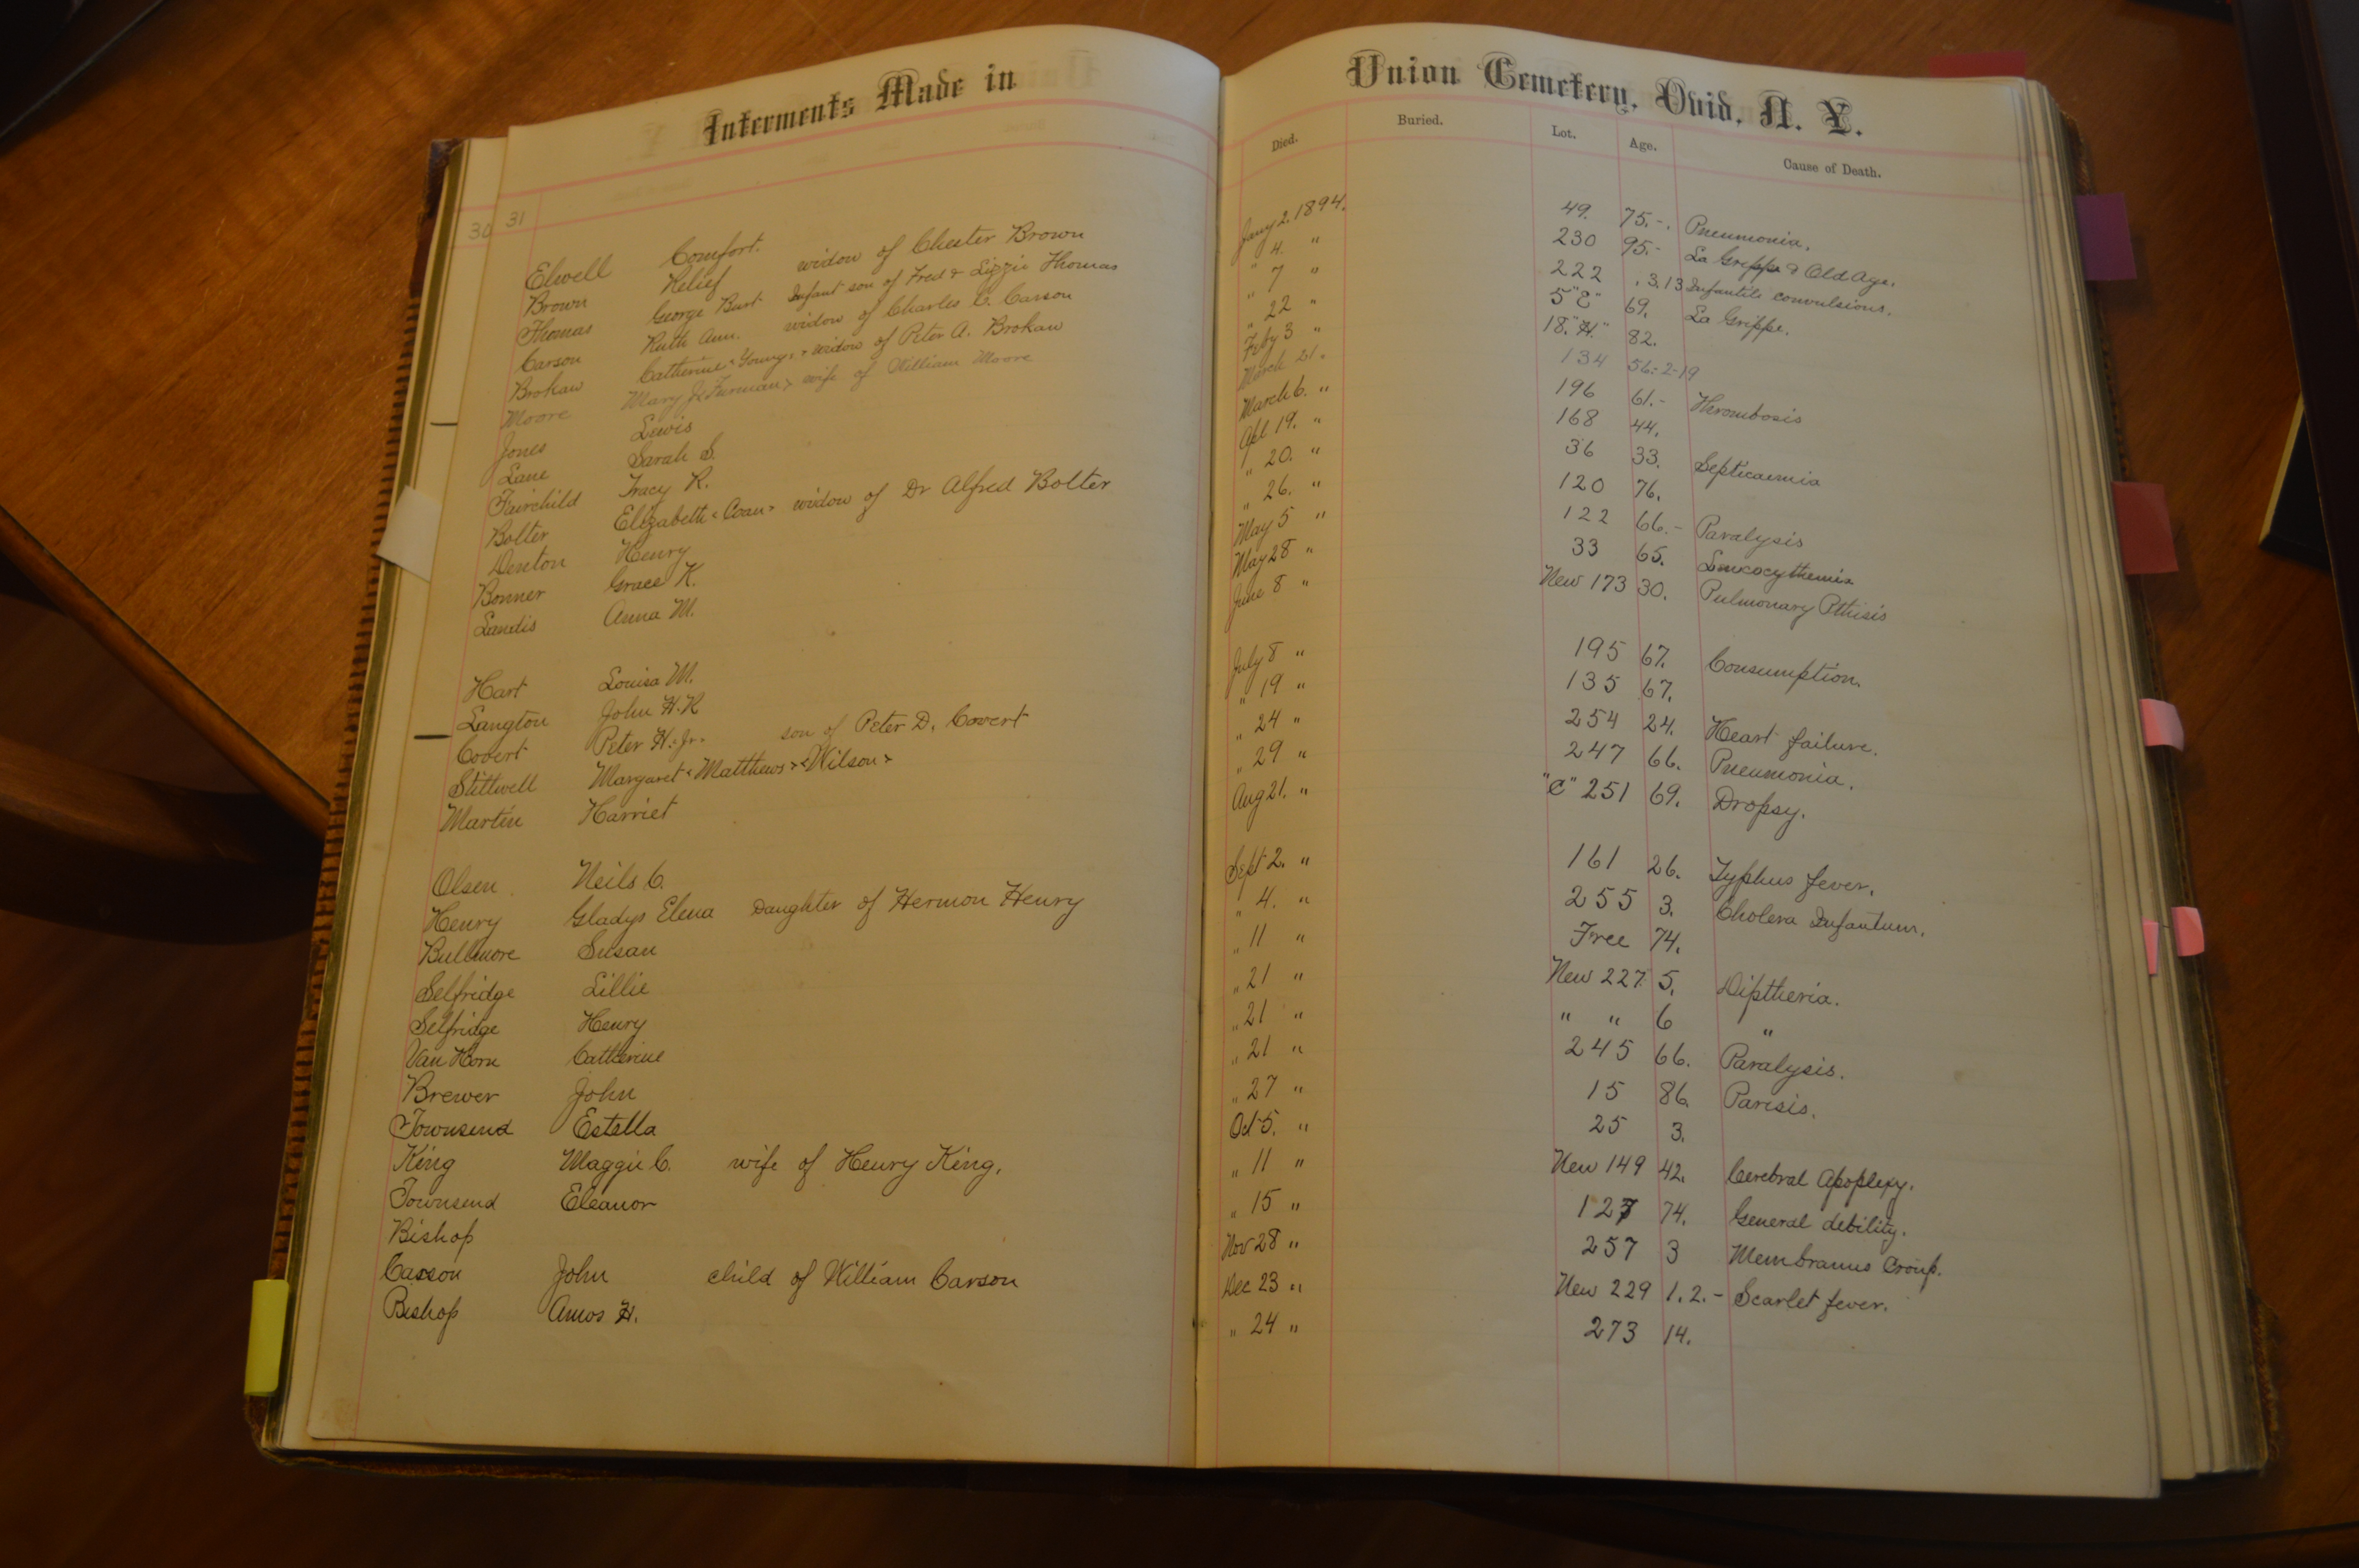 Interments Made in Union Cemetery, Ovid, N. Y.
Died. Buried. Lot. Age. Cause of Death.
30 31
Elwell Comfort. Jany 2. 1894. 49. 75.-. Pneumonia.
Brown Relief widow of Chester Brown " 4. " 230 95.- La Grippe & Old Age.
Thomas George Burt Infant son of Fred & Lizzie Thomas " 7 " 222 . 3. 13 Infantile convulsions.
Carson Ruth Ann. widow of Charles C. Carson " 22 " 5 "E" 69. La Grippe.
Brokaw Catherine < Young > widow of Peter A. Brokaw Feby 3 " 18. "H." 82.
Moore Mary J. < Furman > wife of William Moore March 21. 134 56-2-19
Jones Lewis March 6. " 196 61.- Thrombosis
Lane Sarah S. Apl 19. " 168 44.
Fairchild Tracy R. " 20. " 36 33. Septicaemia
Bolter Elizabeth < Coan > widow of Dr Alfred Bolter " 26. " 120 76.
Denton Henry May 5 " 122 66.- Paralysis
Bonner Grace K. May 28 " 33 65. Leucocythemia
Landis Anna M. June 8 " New 173 30. Pulmonary Pthisis
Hart Louisa M. July 8 " 195 67. Consumption.
Langton John H. R " 19 " 135 67.
Covert Peter H. Jr. son of Peter D. Covert " 24 " 254 24. Heart failure.
Stillwell Margaret < Matthews > < Wilson > " 29 " 247 66. Pneumonia.
Martin Harriet Aug 21. " "C" 251 69. Dropsy.
Olsen Neils C. Sept 2. " 161 26. Typhus fever.
Henry Gladys Elena Daughter of Hermon Henry " 4. " 255 3. Cholera Infantum.
Bullmore Susan " 11 " Free 74.
Selfridge Lillie " 21 " New 227. 5. Diptheria.
Selfridge Henry " 21 " " " 6 "
Van Horn Catherine " 21 " 245 66. Paralysis.
Brewer John " 27 " 15 86. Parisis.
Townsend Estella Oct 5. " 25 3.
King Maggie C. wife of Henry King. " 11 " New 149 42. Cerebral Apoplexy.
Townsend Eleanor " 15 " 127 74. General debility.
Bishop Nov 28 " 257 3 Membranus Croup.
Carson John child of William Carson Dec 23 " New 229 1. 2. - Scarlet fever.
Bishop Amos H. " 24 " 273 14.